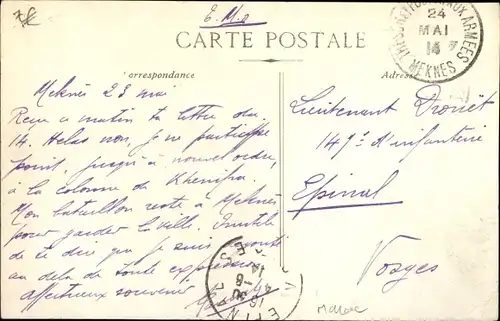 E.M.O
CARTE POSTALE
Correspondance
Adresse
TRESOR ET POSTES AUX ARMEES
24
MAI
14
MEKNES
Meknès 23 mai
Reçu ce matin ta lettre du
14. Helas non, je ne participe
point, jusqu'à nouvel ordre,
à la colonne de Khenifra.
Mon bataillon reste à Meknès
pour garder la ville. Inutile
de te dire que je suis
au delà de toute expression.
Affectueux souvenir
Lieutenant Drouët
149e d'infanterie
Epinal
Vosges
EPINAL
Maroc